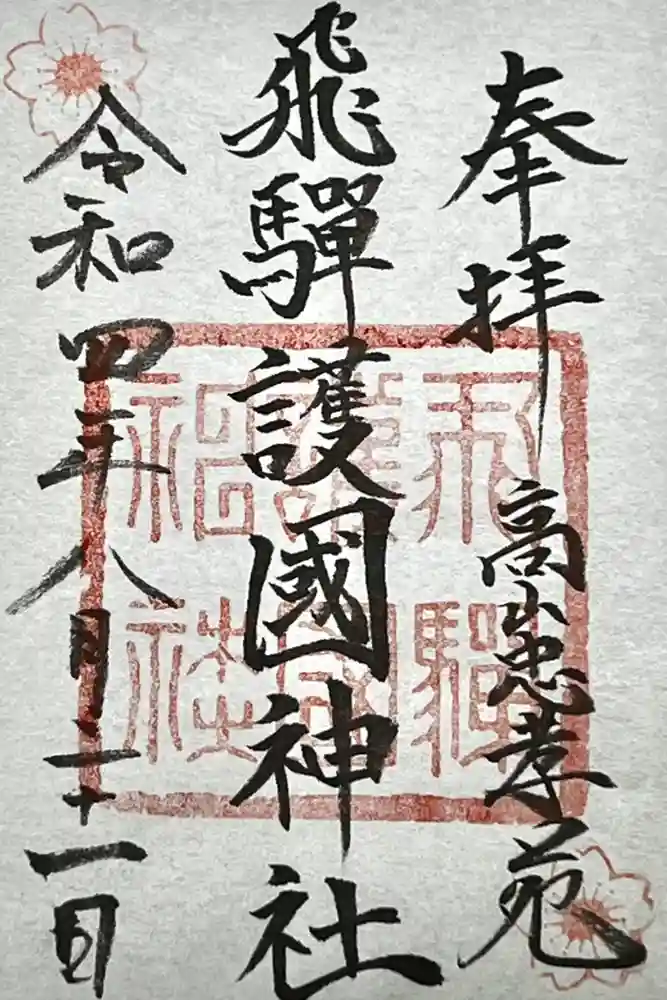 奉拝
高山忠孝苑
飛驒護國神社
令和四年八月二十一日
飛驒
護國
神社